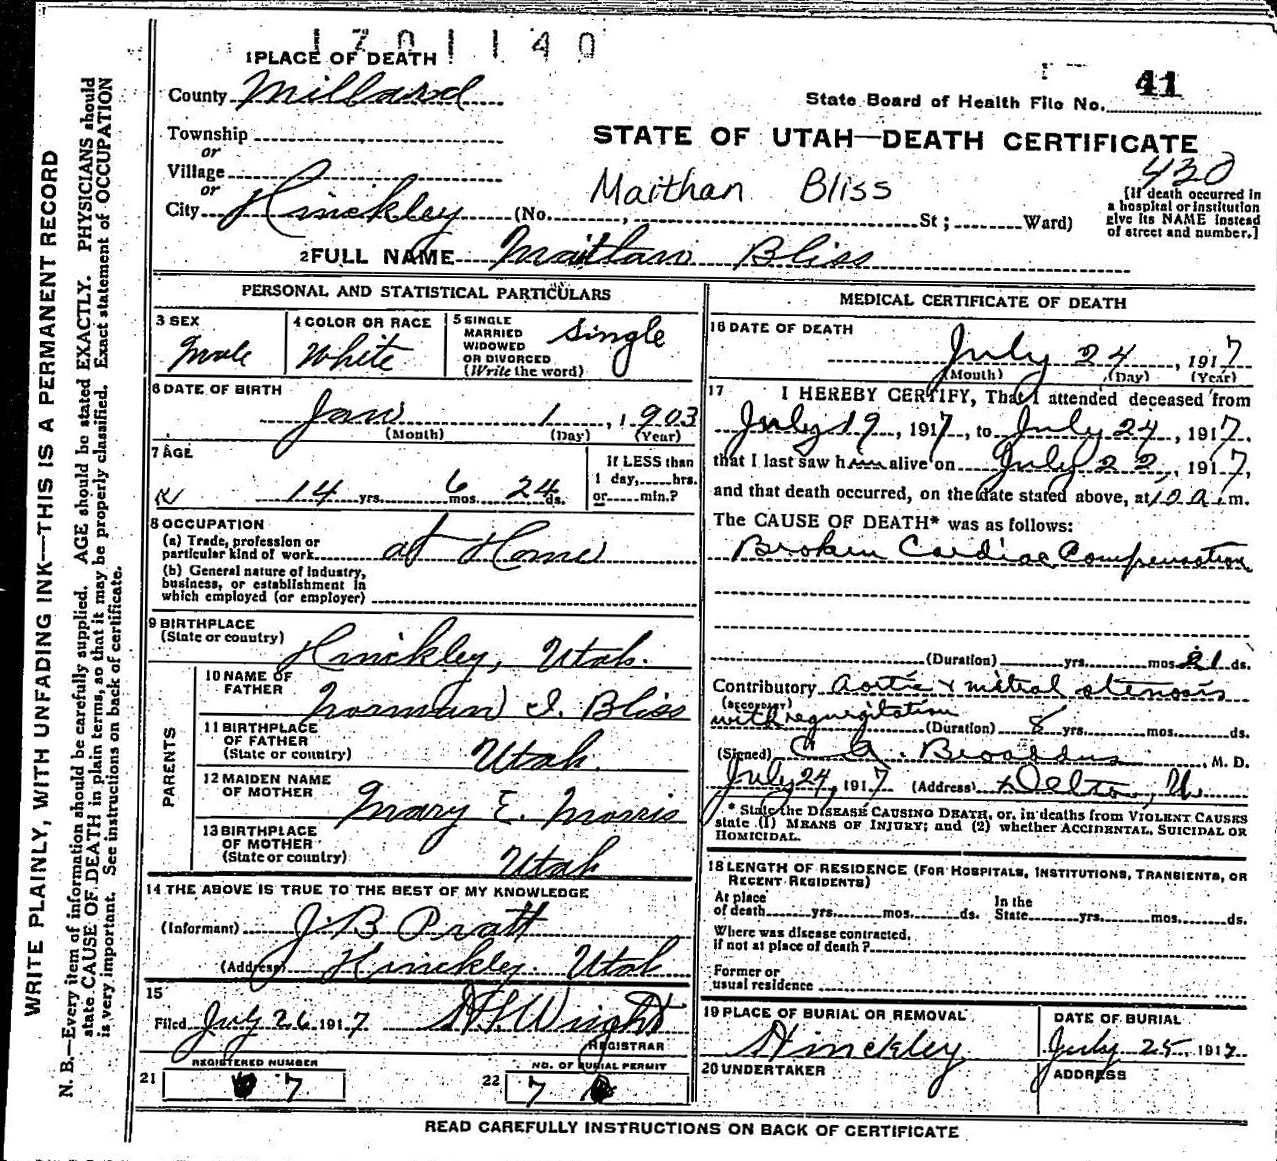 1701140
1 PLACE OF DEATH
41
County Millard
State Board of Health File No.
Township
or
STATE OF UTAH—DEATH CERTIFICATE
Village
or
430
Maithan Bliss
[If death occurred in
a hospital or institution
give its NAME instead
of street and number.]
City Hinckley (No. , St ; Ward)
2 FULL NAME Maithan Bliss
PERSONAL AND STATISTICAL PARTICULARS
3 SEX
Male
4 COLOR OR RACE
White
5 SINGLE
MARRIED
WIDOWED
OR DIVORCED
(Write the word)
Single
6 DATE OF BIRTH
Jan 1, 1903
(Month) (Day) (Year)
7 AGE
14 yrs. 6 mos. 24 ds.
If LESS than
1 day, hrs.
or min.?
8 OCCUPATION
(a) Trade, profession or
particular kind of work at Home
(b) General nature of industry,
business, or establishment in
which employed (or employer)
9 BIRTHPLACE
(State or country) Hinckley, Utah.
PARENTS
10 NAME OF
FATHER
Norman I. Bliss
11 BIRTHPLACE
OF FATHER
(State or country) Utah.
12 MAIDEN NAME
OF MOTHER
Mary E. Morris
13 BIRTHPLACE
OF MOTHER
(State or country) Utah
14 THE ABOVE IS TRUE TO THE BEST OF MY KNOWLEDGE
(Informant) J. B. Pratt
(Address) Hinckley. Utah
15
Filed July 26 1917 Wright
REGISTRAR
REGISTERED NUMBER
21 7
NO. OF BURIAL PERMIT
22 7
MEDICAL CERTIFICATE OF DEATH
16 DATE OF DEATH
July 24, 1917
(Month) (Day) (Year)
17 I HEREBY CERTIFY, That I attended deceased from
July 19, 1917, to July 24, 1917,
that I last saw him alive on July 22, 1917,
and that death occurred, on the date stated above, at 10 a.m.
The CAUSE OF DEATH* was as follows:
Broken Cardiac Compensation
(Duration) yrs. mos. 21 ds.
Contributory Aortic & mitral stenosis
(SECONDARY)
with regurgitation (Duration) 8 yrs. mos. ds.
(Signed) C. A. Broaddus, M. D.
July 24, 1917 (Address) Delta, U.
* State the DISEASE CAUSING DEATH, or, in deaths from VIOLENT CAUSES
state (1) MEANS OF INJURY; and (2) whether ACCIDENTAL, SUICIDAL OR
HOMICIDAL.
18 LENGTH OF RESIDENCE (FOR HOSPITALS, INSTITUTIONS, TRANSIENTS, OR
RECENT RESIDENTS)
At place
of death yrs. mos. ds.
In the
State yrs. mos. ds.
Where was disease contracted,
if not at place of death?
Former or
usual residence
19 PLACE OF BURIAL OR REMOVAL
Hinckley
DATE OF BURIAL
July 25, 1917
20 UNDERTAKER
ADDRESS
READ CAREFULLY INSTRUCTIONS ON BACK OF CERTIFICATE
WRITE PLAINLY, WITH UNFADING INK—THIS IS A PERMANENT RECORD
N. B.—Every item of information should be carefully supplied. AGE should be stated EXACTLY. PHYSICIANS should
state CAUSE OF DEATH in plain terms, so that it may be properly classified. Exact statement of OCCUPATION
is very important. See instructions on back of certificate.